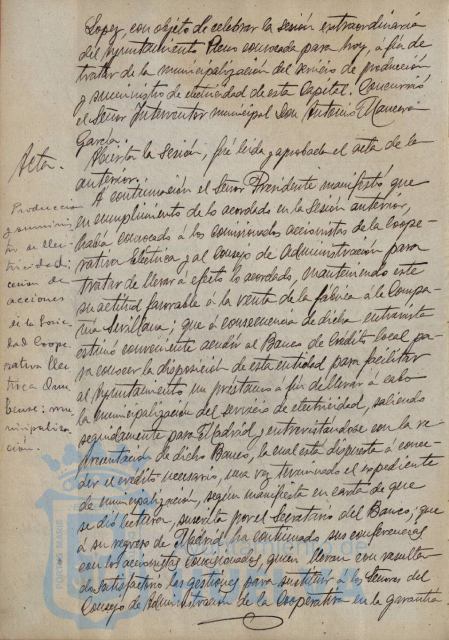 Lopez, con objeto de celebrar la sesión extraordinaria
del Ayuntamiento Pleno convocada para hoy, á fin de
tratar de la municipalización del servicio de producción
y suministro de electricidad de esta Capital. Concurrió
el Señor Interventor municipal Don Antonio Mancera
García.
Acta.
Abierta la sesión, fué leida y aprobada el acta de la
anterior.
Producción
y suminis-
tro de elec-
tricidad;
cesión de
acciones
de la Socie-
dad Coope-
rativa Elec-
trica Onu-
bense; mu-
nicipaliza-
ción.
A continuación el Señor Presidente manifestó que
en cumplimiento de lo acordado en la sesión anterior,
había convocado á los comisionados accionistas de la Coope-
rativa Eléctrica y al Consejo de Administración para
tratar de llevar á efecto lo acordado, manteniendo este
su actitud favorable á la venta de la fábrica á la Compa-
ñia Sevillana; que á consecuencia de dicha entrevista
estimó conveniente acudir al Banco de Crédito local pa-
ra conocer la disposición de esta entidad para facilitar
al Ayuntamiento un prestamo á fin de llevar á cabo
la municipalización del servicio de electricidad, saliendo
seguidamente para Madrid y entrevistandose con la re-
presentación de dicho Banco, la cual está dispuesta á conce-
der el crédito necesario, una vez terminado el expediente
de municipalización, según manifiesta en carta de que
se dió lectura, suscrita por el Secretario del Banco; que
á su regreso de Madrid ha continuado sus conferencias
con los accionistas comisionados, quienes llevan con resulta-
do satisfactorio las gestiones para sustituir á los Señores del
Consejo de Administración de la Cooperativa en la garantía